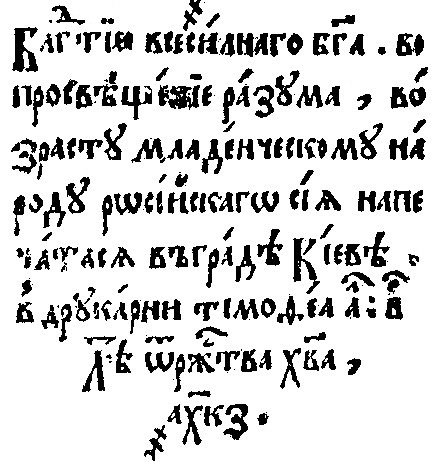 Благⷣтїю всесилнаго бг҃а . во
просвѣщенїе ра́зума , во́
зрасту младе́нческому на́
роду рѡсі́йскагѡ сїѧ напе
ча́тасѧ въ гра́дѣ Кі́евѣ .
в̾ друка́рни тімоѳе́а а҃ : в҃
Лѣ ѿ ржⷭ҇тва хв҃а ,
ах҃кз .